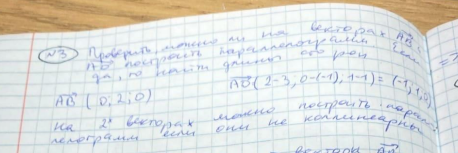 №3 Проверить можно ли на векторах AB и
AD построить параллелограмм. Если
да, то найти длины его
AB (0; 2; 0) AD (2-3, 0-(-1), 1-1) = (-1, 1, 0)
На 2х векторах можно построить парал-
лелограмм если они не коллинеарны
вектора AB
=?